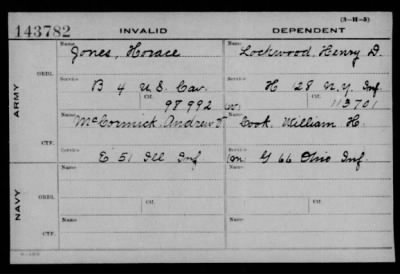 (3-H-5)
143782 INVALID DEPENDENT
Name Name
Jones, Horace Lockwood, Henry D.
ORD.
Service Service
B 4 U.S. Cav. H 128 N.Y. Inf.
Ctf. Ctf.
98992 W. 113701
ARMY
Name Name
McCormick, Andrew F. Cook, William H.
CTF.
Service Service
E 51 Ill Inf m G 66 Ohio Inf.
Name Name
ORD.
Service Ctf. Service Ctf.
NAVY
Name Name
CTF.
Service Service